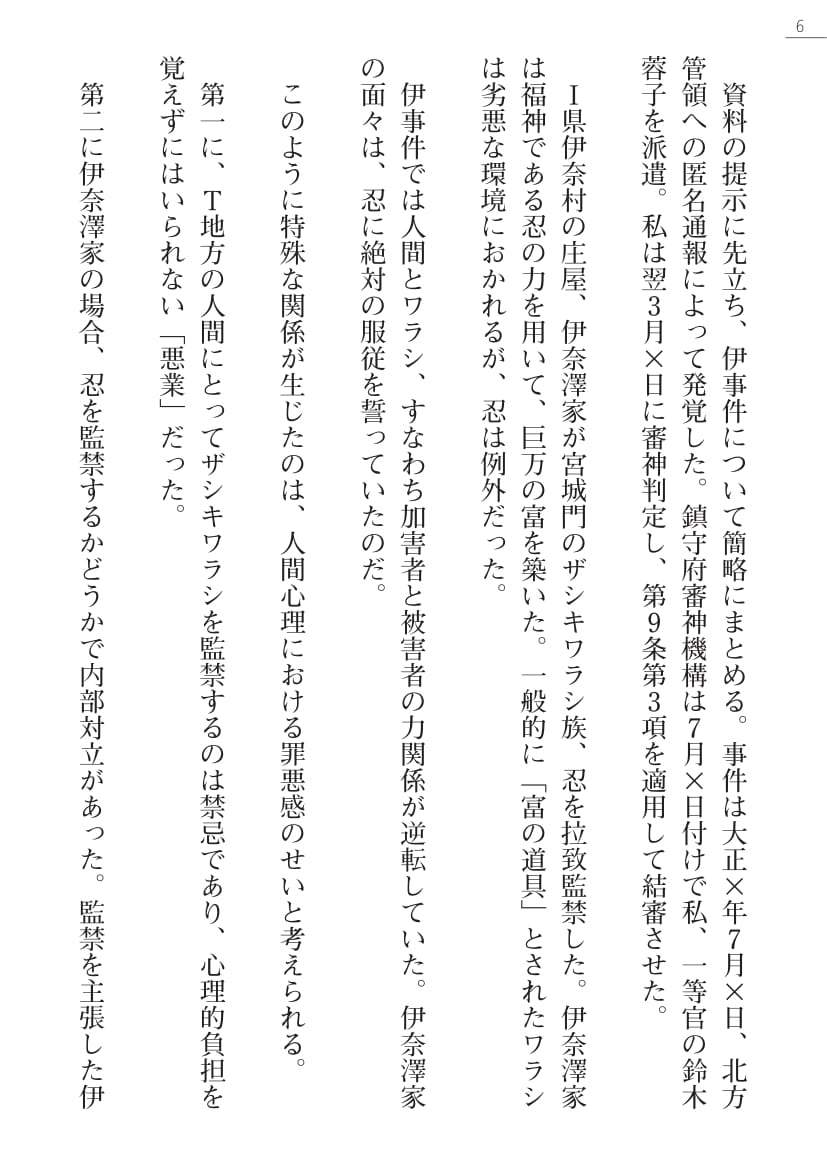 6
資料の提示に先立ち、伊事件について簡略にまとめる。事件は大正×年7月×日、北方
管領への匿名通報によって発覚した。鎮守府審神機構は7月×日付けで私、一等官の鈴木
蓉子を派遣。私は翌3月×日に審神判定し、第9条第3項を適用して結審させた。
I県伊奈村の庄屋、伊奈澤家が宮城門のザシキワラシ族、忍を拉致監禁した。伊奈澤家
は福神である忍の力を用いて、巨万の富を築いた。一般的に「富の道具」とされたワラシ
は劣悪な環境におかれるが、忍は例外だった。
伊事件では人間とワラシ、すなわち加害者と被害者の力関係が逆転していた。伊奈澤家
の面々は、忍に絶対の服従を誓っていたのだ。
このように特殊な関係が生じたのは、人間心理における罪悪感のせいと考えられる。
第一に、T地方の人間にとってザシキワラシを監禁するのは禁忌であり、心理的負担を
覚えずにはいられない「悪業」だった。
第二に伊奈澤家の場合、忍を監禁するかどうかで内部対立があった。監禁を主張した伊